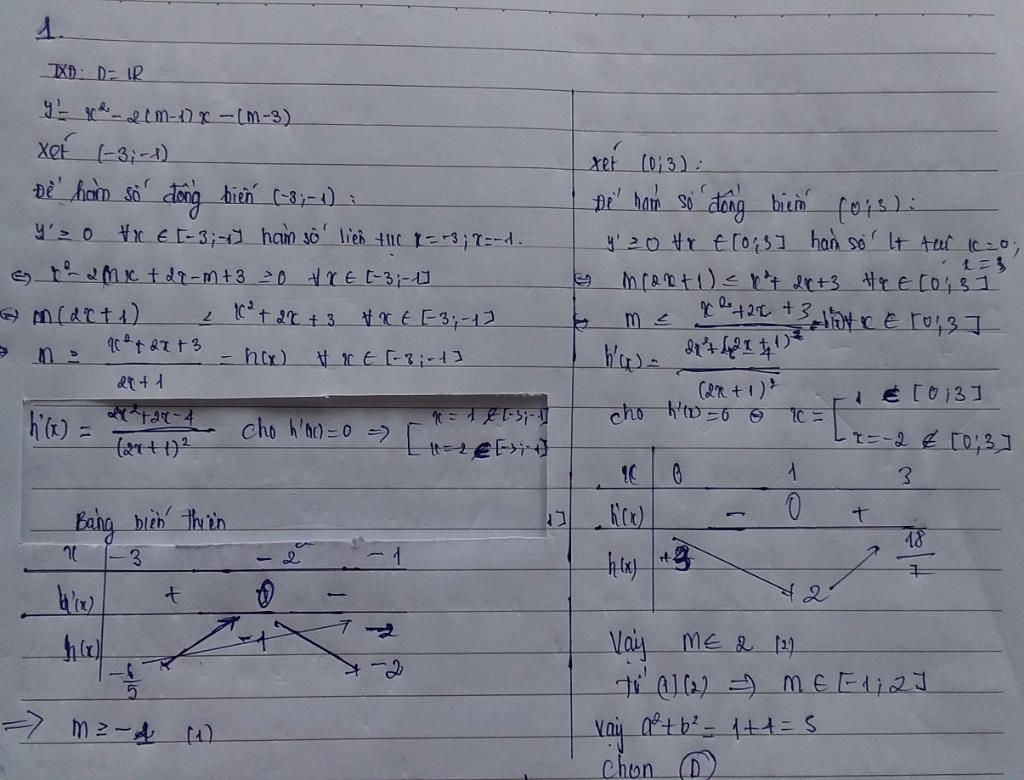 1.
TXĐ: D = R
y' = x² - 2(m-1)x - (m-3)
Xét (-3;-1)
Để hàm số đồng biến (-3;-1) :
y' ≥ 0 ∀x ∈ [-3;-1] hàm số liên tục x=-3; x=-1.
⇔ x² - 2mx + 2x - m + 3 ≥ 0 ∀x ∈ [-3;-1]
⇔ m(2x+1) ≤ x² + 2x + 3 ∀x ∈ [-3;-1]
m ≥ (x²+2x+3)/(2x+1) = h(x) ∀x ∈ [-3;-1]
h'(x) = (2x²+2x-4)/(2x+1)² cho h'(x)=0 ⇒ [ x = 1 ∉ [-3;-1]
x = -2 ∈ [-3;-1]
Bảng biến thiên
x -3 -2 -1
h'(x) + 0 -
h(x) -6/5 -1 -2
⇒ m ≥ -1 (1)
xét (0;3) :
Để hàm số đồng biến (0;3) :
y' ≥ 0 ∀x ∈ [0;3] hàm số lt tại x=0;
x=3
⇔ m(2x+1) ≤ x² + 2x + 3 ∀x ∈ [0;3]
m ≤ (x²+2x+3)/(2x+1) ∀x ∈ [0;3]
h'(x) = (2x²+2x-4)/(2x+1)²
cho h'(x)=0 ⇔ x = [ 1 ∈ [0;3]
x=-2 ∉ [0;3]
x 0 1 3
h'(x) - 0 +
h(x) +3 2 18/7
Vậy m ≤ 2 (2)
Từ (1)(2) ⇒ m ∈ [-1;2]
Vậy a²+b² = 1+4 = 5
chọn D